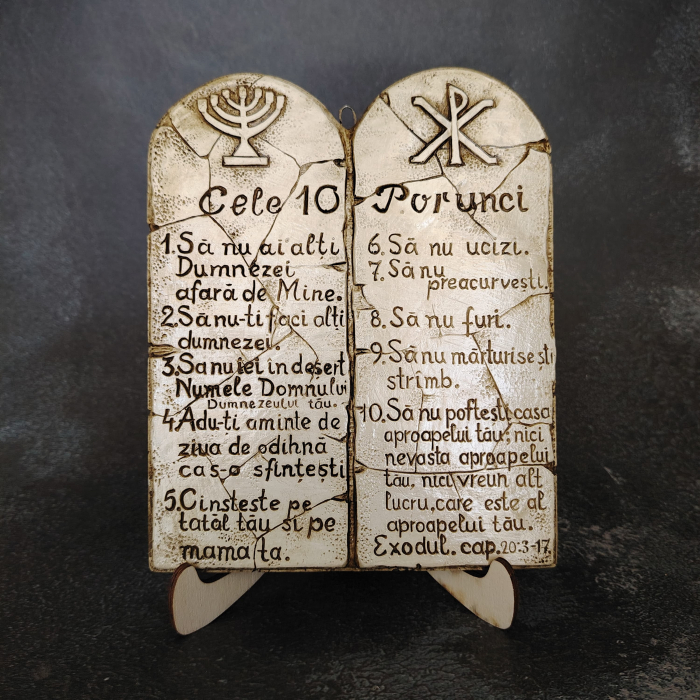 Cele 10 Porunci
1. Să nu ai alți
Dumnezei
afară de Mine.
2. Să nu-ti faci alți
dumnezei.
3. Sa nu iei in deșert
Numele Domnului
Dumnezeului tău.
4. Adu-ti aminte de
ziua de odihnă
ca s-o sfințești
5. Cinsteste pe
tatăl tău și pe
mama ta.
6. Să nu ucizi.
7. Să nu
preacurvești.
8. Să nu furi.
9. Să nu mărturisești
strîmb.
10. Să nu poftești casa
aproapelui tău; nici
nevasta aproapelui
tău, nici vreun alt
lucru, care este al
aproapelui tău.
Exodul. cap. 20:3-17.